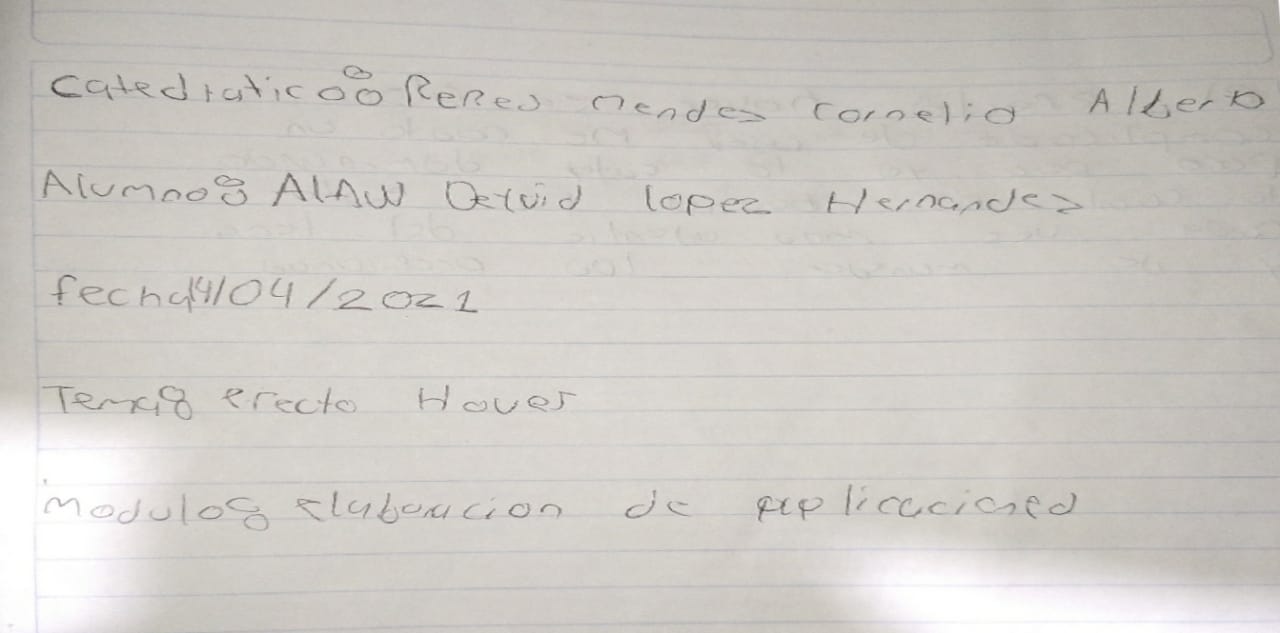 Catedratico: Reyes mendes cornelio Alberto
Alumno: Alan David lopez Hernandez
fecha 14/04/2021
Tema: efecto Hover
modulo: elaboracion de aplicaciones